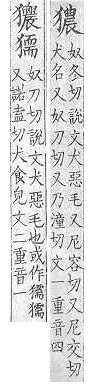 㺜
奴冬切說文犬惡毛又尼容切又尼交切
犬名又奴刀切又乃潼切文一重音四
㺜獳
奴刀切說文犬惡毛也或作獳㺜
又諾盍切犬食皃文二重音一